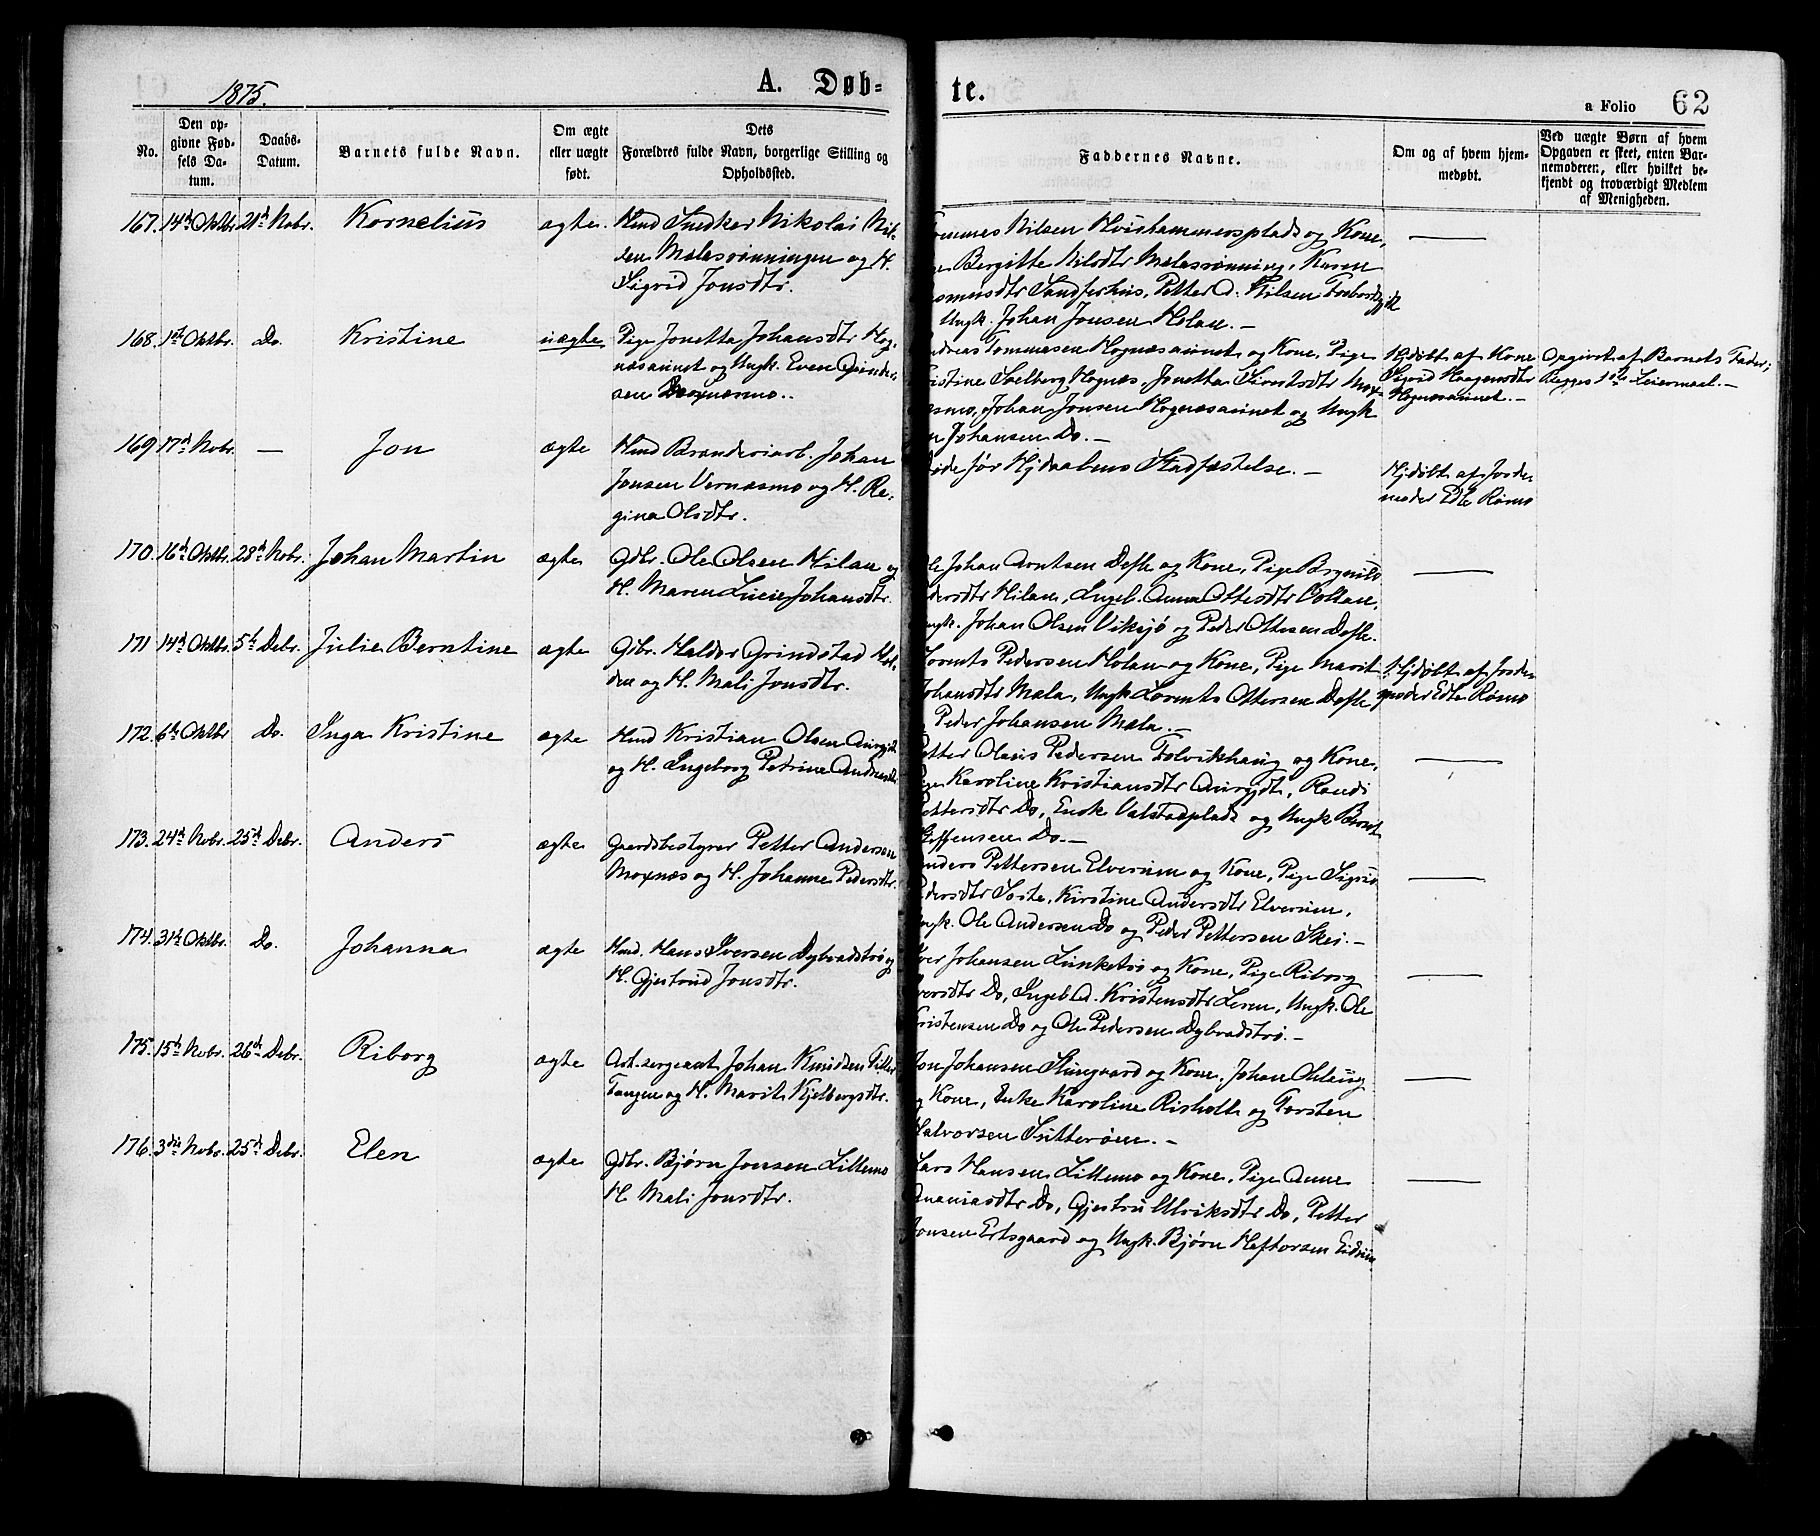 1875.
A. Døb-
te.
a Folio 62
No.
Den op-
givne Fød-
sels Da-
tum.
Daabs-
Datum.
Barnets fulde Navn.
Om ægte
eller uægte
født.
Dets
Forældres fulde Navn, borgerlige Stilling og
Opholdssted.
Faddernes Navne.
Om og af hvem hjem-
medøbt.
Ved uægte Børn af hvem
Opgaven er skeet, enten Bar-
nemoderen, eller hvilket be-
kjendt og troværdigt Medlem
af Menigheden.
167. 14d Oktbr. 21d Novbr. Kornelius ægte.
Hmd Snedker Nikolai Nil-
sen Mælasrønningen og H.
Sigrid Jonsdtr.
Nilsen Kvishammersplads og Kone,
Bergitte Nilsdtr Mælasrønning, Karen
Petter A. Nilsen
Ungk. Johan Jonsen Holan. —
168. 1ste Oktbr. Do. Kristine uægte
Pige Jonetta Johansdtr Hog-
næsaunet og Ungk. Even Grinder-
sen Moxnæsmo.
Tommesen Hognæsaunet og Kone, Pige
Salberg Hognæs, Jonetta Sivertsdtr Mox-
Johan Jonsen Hognæsaunet og Ungk
Johansen Do. —
Hjdøbt af Kone
Sigrid Haagensdtr
Hognæsaunet. —
Opgivet af Barnets Fader;
Begges 1ste Leiermaal. —
169 17d Novbr. — Jon ægte
Hmd Brænderiarb. Johan
Jonsen Vernæsmo og H. Re-
gina Olsdtr.
før Hjdaabens Stadfæstelse. —
Hjdøbt af Jorde-
moder Edle Rømo
170. 16d Oktbr. 28d Novbr. Johan Martin ægte
Gdbr. Ole Olsen Hilan og
H. Maren Lucie Johansdtr.
Johan Arntsen Defle og Kone, Pige Brynild
Hilan, Ingeb. Anna Ottesdtr Vollan,
Johan Olsen Viksjø og Peder Ottesen Defle.
171 14d Oktbr. 5te Debr. Julie Berntine ægte
Gdbr. Haldor Grindstad Hol-
den og H. Mali Jonsdtr.
Lornts Pedersen Holan og Kone, Pige Marit
Johansdtr Mæla, Ungk Lornts Ottersen Defle,
Peder Johansen Mæla. —
Hjdøbt af Jorde-
moder Edle Rømo
172. 6te Oktbr Do. Inga Kristine ægte
Hmd Kristian Olsen
og H. Ingeborg Petrine
Petter Olaus Pedersen Folvikhaug og Kone,
Karoline Kristiansdtr Randi
Pettersdtr Do, Enok Valstadplads og Ungk Bernt
Steffensen Do. —
173. 24d Novbr. 25d Debr. Anders ægte
Gaardsbestyrer Petter Andersen
Moxnæs og H. Johanne Pedersdtr.
Anders Pettersen Elverum og Kone, Pige Sigrid
Pedersdtr Soste, Kirstine Andersdtr Elverum,
Ungk. Ole Andersen Do og Peder Pettersen Skei. —
174. 31te Oktbr. Do. Johanna ægte
Hmd. Hans Iversen Dybvadstrø og
H. Gjertrud Jonsdtr.
Iver Johansen Lunketrø og Kone, Pige Riborg
Iversdtr Do, Ingeb. A. Kristensdtr Leren, Ungk. Ole
Kristensen Do og Ole Pedersen Dybvadstrø. —
175. 15de Novbr. 26de Debr. Riborg ægte
Art. sergeant Johan Knudsen
Tangen og H. Marit Kjelbergsdtr.
Jon Johansen Stuegaard og Kone, Johan
og Kone, Enke Karoline Risholt og Torsten
Halvorsen Sutterøen. —
176. 3die Novbr. 25d Debr. Elen ægte
Gdbr. Bjørn Jonsen Lillemo
H. Mali Jonsdtr.
Lars Hansen Lillemo og Kone, Pige Anne
Ananiasdtr Do, Gjertru Ulriksdtr Do, Petter
Jonsen Ertsgaard og Ungk. Bjørn Heftorsen Eidum